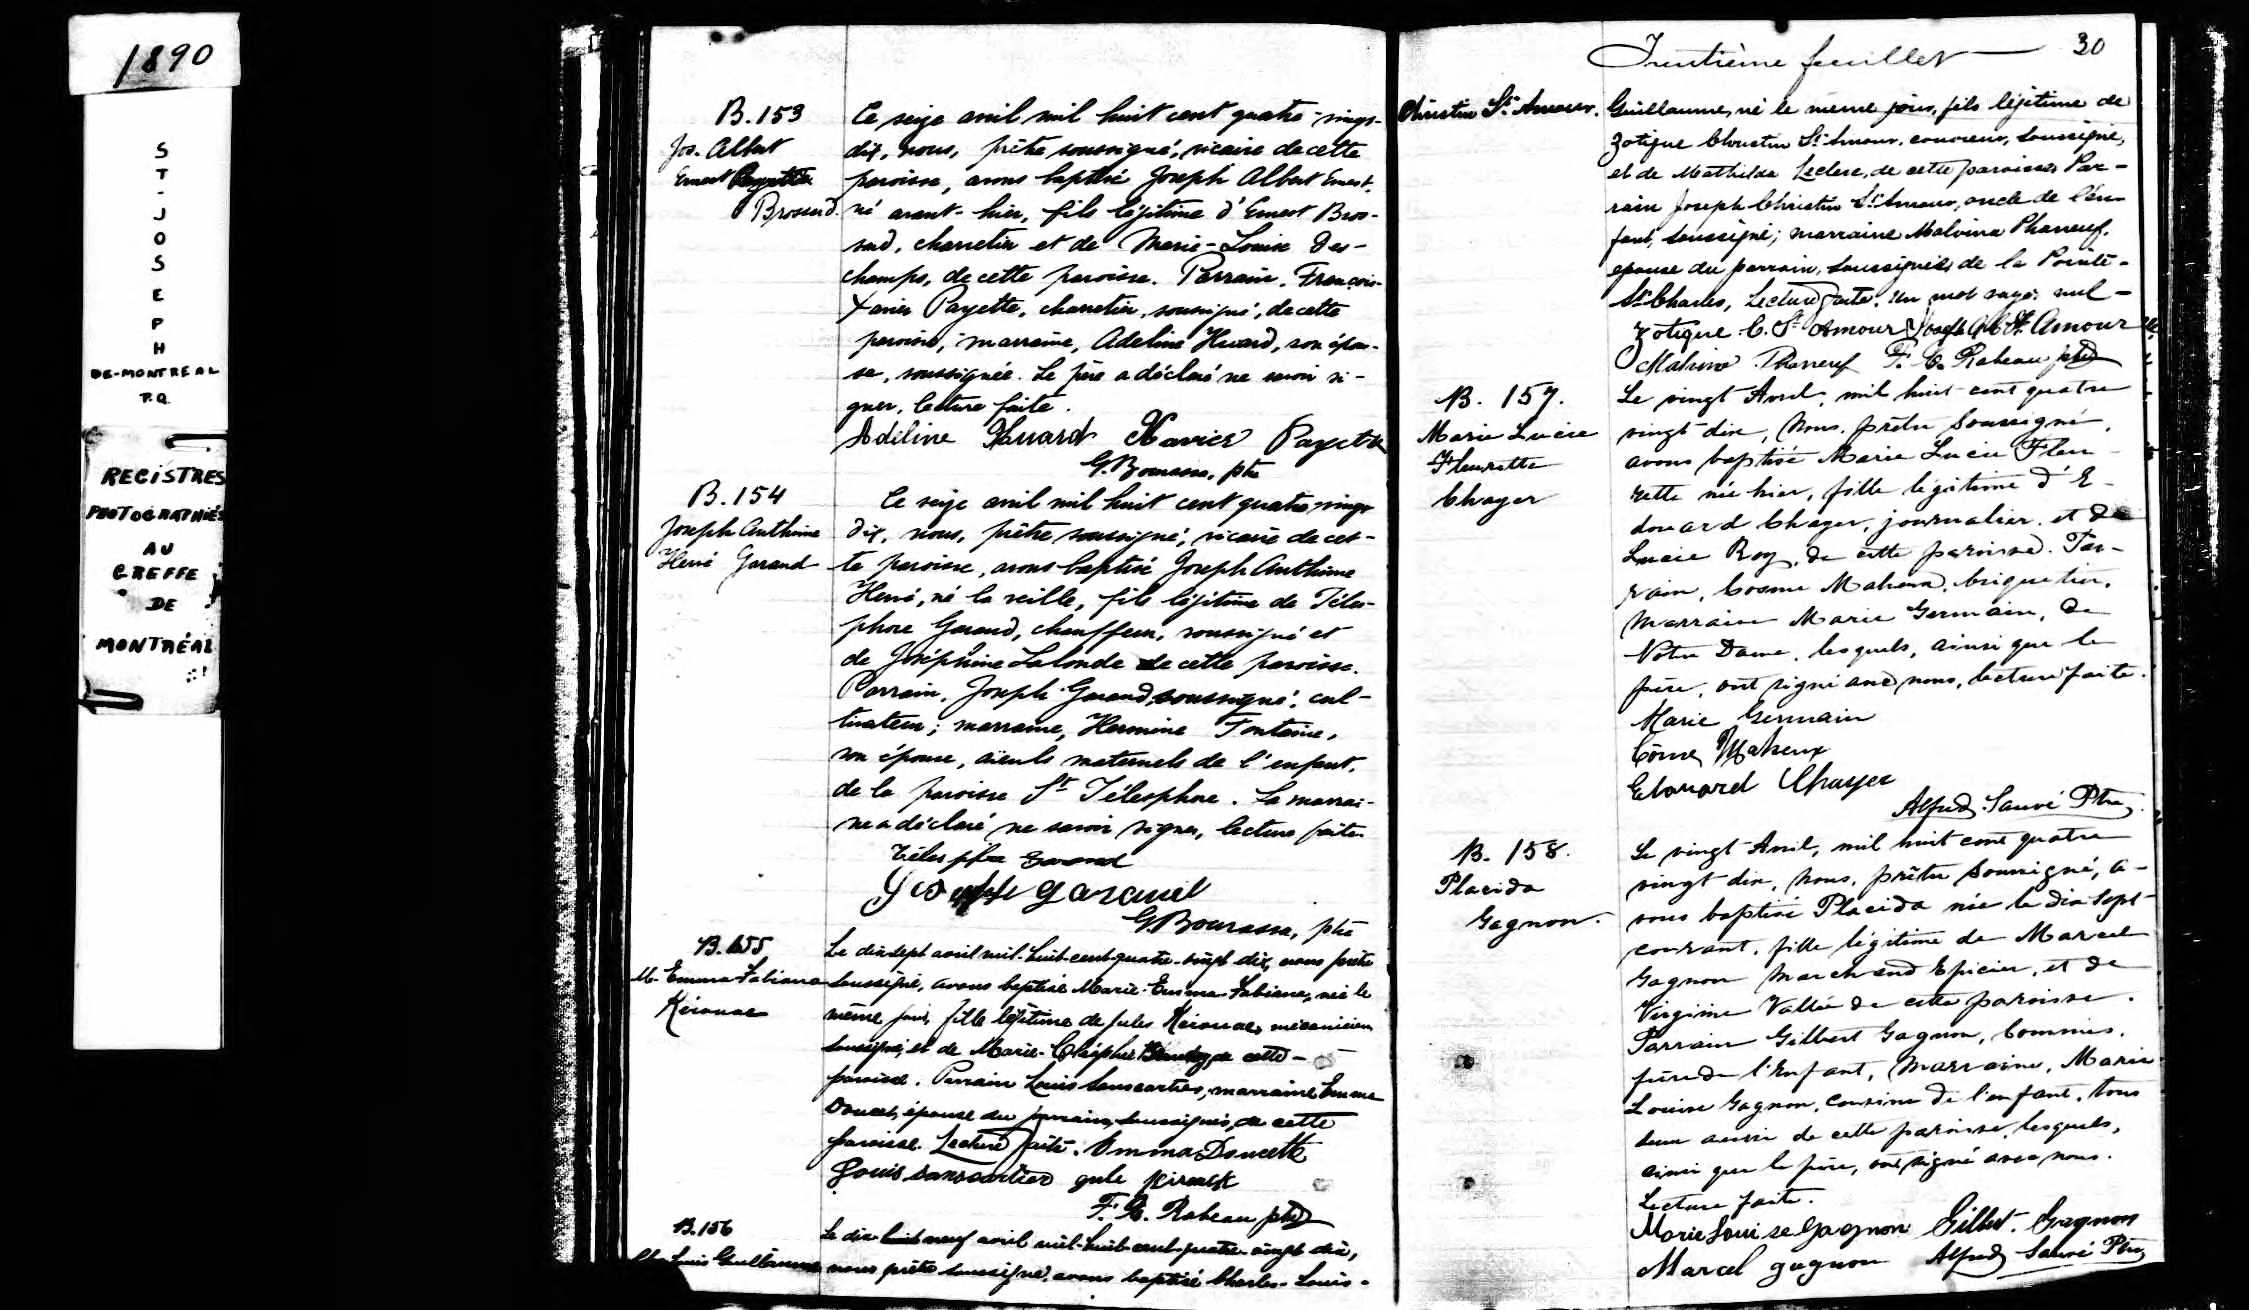 1890
ST-JOSEPH
DE-MONTREAL
P.Q.
REGISTRES
PHOTOGRAPHIÉS
AU
GREFFE
DE
MONTRÉAL
B. 153
Jos. Albert
Ernest Payette
Brossard.
Ce seize avril mil huit cent quatre-vingt-
dix, nous, prêtre soussigné, vicaire de cette
paroisse, avons baptisé Joseph Albert Ernest,
né avant-hier, fils légitime d'Ernest Bros-
sard, charretier et de Marie-Louise Des-
champs, de cette paroisse. Parrain, François-
Xavier Payette, charretier, soussigné, de cette
paroisse, marraine, Adeline Huard, son épou-
se, soussignée. Le père a déclaré ne savoir si-
gner, lecture faite.
Adeline Huard Xavier Payette
G. Bourassa, ptre
B. 154
Joseph Anthime
Hervé Garand
Ce seize avril mil huit cent quatre vingt
dix, nous, prêtre soussigné, vicaire de cet-
te paroisse, avons baptisé Joseph Anthime
Hervé, né la veille, fils légitime de Téles-
phore Garand, chauffeur, soussigné et
de Joséphine Lalonde de cette paroisse.
Parrain, Joseph Garand soussigné, cul-
tivateur; marraine, Hermine Fontaine,
son épouse, aïeuls maternels de l'enfant,
de la paroisse St Télesphore. La marrai-
ne a déclaré ne savoir signer, lecture faite.
Garand
Joseph garand
G. Bourassa, ptre
B. 155
M. Emma-Fabiana
Kérouac
Le dix-sept avril mil-huit-cent-quatre-vingt dix, nous prêtre
soussigné, avons baptisé Marie-Emma-Fabiana, née le
même jour, fille légitime de Jules Kérouac, mécanicien
soussigné, et de Marie- de cette
paroisse. Parrain Louis Sanscartier, marraine Emma
Doucet, épouse du parrain, soussignés, de cette
paroisse. Lecture faite. Emma Doucette
Louis Sanscartier
F. X. Rabeau ptre
B. 156
Louis Guillaume
Le dix-huit neuf avril mil-huit-cent-quatre-vingt dix,
nous prêtre soussigné, avons baptisé Charles-Louis-
Trentième feuillet 30
Christin St. Amour.
Guillaume, né le même jour, fils légitime de
Zotique Christin St. Amour, couvreur, soussigné,
et de Mathilda Leclerc, de cette paroisse. Par-
rain Joseph Christin St. Amour, oncle de l'en-
fant, soussigné; marraine Malvina Phaneuf,
épouse du parrain, soussignés, de la Pointe-
St. Charles, Lecture faite. Un mot rayé nul-
Zotique C. St Amour Joseph C. St. Amour
Malvina Phaneuf F. X. Rabeau ptre
B. 157.
Marie Lucie
Fleurette
Chayer
Le vingt Avril, mil huit cent quatre
vingt-dix, Nous, prêtre Soussigné,
avons baptisé Marie Lucie Fleu-
rette née hier, fille légitime d'E-
douard Chayer, journalier, et de
Lucie Roy, de cette paroisse. Par-
rain, Cosme Maheux, briquetier,
Marraine Marie Germain, de
Notre Dame, lesquels, ainsi que le
père, ont signé avec nous, lecture faite.
Marie Germain
Côme Maheux
Edouard Chayer
Alfred Sauvé Ptre
B. 158.
Placida
Gagnon.
Le vingt Avril, mil huit cent quatre
vingt-dix, Nous, prêtre Soussigné, a-
vons baptisé Placida née le dix-sept
courant, fille légitime de Marcel
Gagnon Marchand Epicier, et de
Virginie Vallée de cette paroisse.
Parrain Gilbert Gagnon, Commis,
frère de l'Enfant, Marraine, Marie
Louise Gagnon, cousine de l'enfant, tous
deux aussi de cette paroisse, lesquels,
ainsi que le père, ont signé avec nous.
Lecture faite.
Marie Louise Gagnon Gilbert Gagnon
Marcel gagnon Alfred Sauvé Ptre